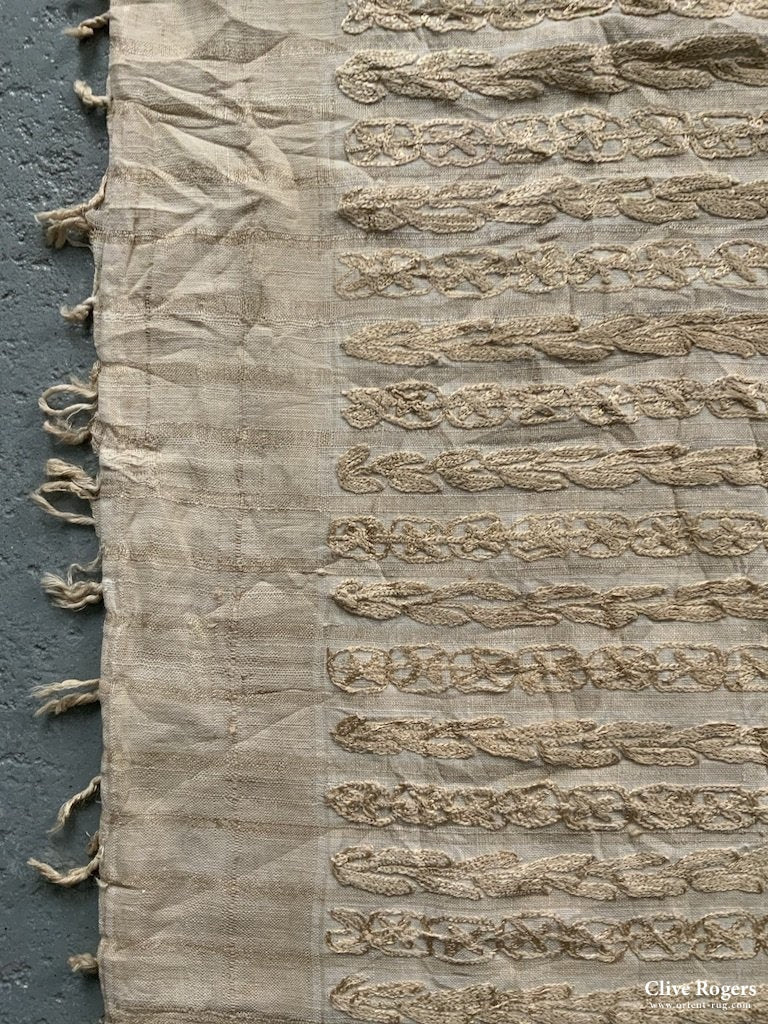 Clive Rogers
www.orient-rug.com